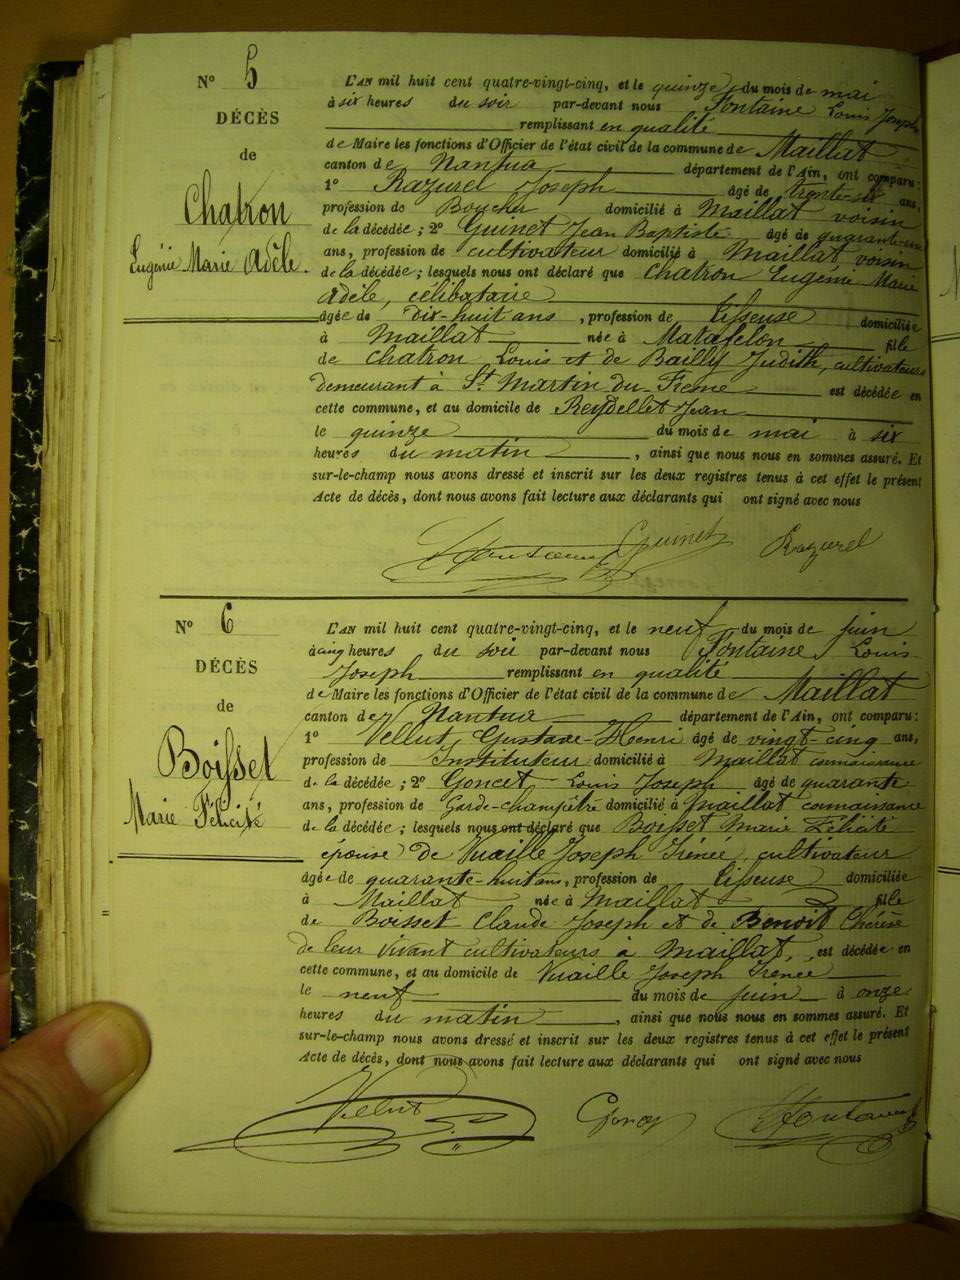 N° 5
DÉCÈS
de
Chatron
Eugénie Marie Adèle.
L'AN mil huit cent quatre-vingt-cinq, et le quinze du mois de mai
à six heures du soir par-devant nous Fontaine Louis Joseph
remplissant en qualité
de Maire les fonctions d'Officier de l'état civil de la commune de Maillat
canton de Nantua département de l'Ain, ont comparu:
1° Razurel Joseph âgé de trente-six ans,
profession de Boucher domicilié à Maillat voisin
de la décédée; 2° Guinet Jean Baptiste âgé de
ans, profession de cultivateur domicilié à Maillat voisin
de la décédée; lesquels nous ont déclaré que Chatron Eugénie Marie
Adèle, célibataire
âgée de Dix-huit ans, profession de tisseuse domiciliée
à Maillat née à Matafelon fille
de Chatron Louis et de Bailly Judith, cultivateurs
demeurant à St Martin du Fresne est décédée en
cette commune, et au domicile de Reydellet Jean
le quinze du mois de mai à six
heures du matin, ainsi que nous nous en sommes assuré. Et
sur-le-champ nous avons dressé et inscrit sur les deux registres tenus à cet effet le présent
Acte de décès, dont nous avons fait lecture aux déclarants qui ont signé avec nous
Fontaine Guinet Razurel
N° 6
DÉCÈS
de
Boisset
Marie Félicité
L'AN mil huit cent quatre-vingt-cinq, et le neuf du mois de juin
à cinq heures du soir par-devant nous Fontaine Louis
Joseph remplissant en qualité
de Maire les fonctions d'Officier de l'état civil de la commune de Maillat
canton de Nantua département de l'Ain, ont comparu:
1° Vellut Gustave-Henri âgé de vingt-cinq ans,
profession de Instituteur domicilié à Maillat connaissance
de la décédée; 2° Goncet Louis Joseph âgé de quarante
ans, profession de Garde-champêtre domicilié à Maillat connaissance
de la décédée; lesquels nous ont déclaré que Boisset Marie Félicité
épouse de Vuaille Joseph Irénée, cultivateur
âgée de quarante-huit ans, profession de tisseuse domiciliée
à Maillat née à Maillat fille
de Boisset Claude Joseph et de Benoit Thérèse
de leur vivant cultivateurs à Maillat, est décédée en
cette commune, et au domicile de Vuaille Joseph Irenée
le neuf du mois de juin à onze
heures du matin, ainsi que nous nous en sommes assuré. Et
sur-le-champ nous avons dressé et inscrit sur les deux registres tenus à cet effet le présent
Acte de décès, dont nous avons fait lecture aux déclarants qui ont signé avec nous
Vellut Fontaine